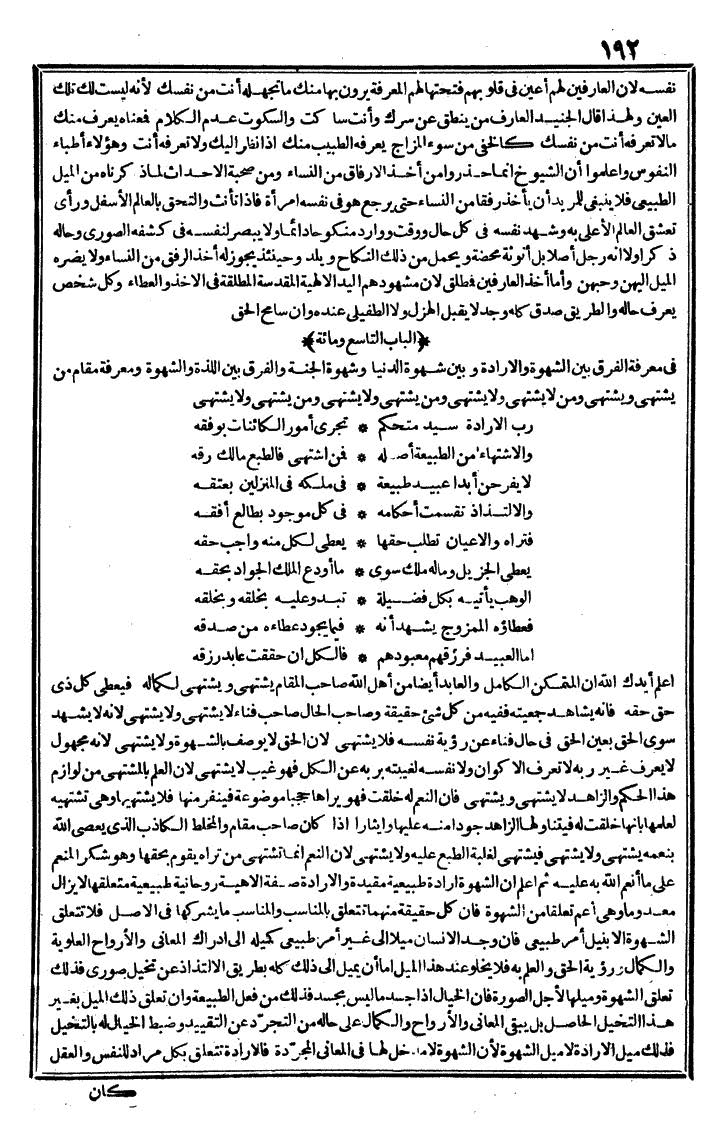 ١٩٢
نفسه لان العارفين لهم أعين في قلوبهم فتحتها لهم المعرفة يرون بها منك ما تجهله أنت من نفسك لأنه ليست لك تلك
العين ولهذا قال الجنيد العارف من ينطق عن سرك وأنت ساكت والسكوت عدم الكلام فمعناه يعرف منك
مالا تعرفه أنت من نفسك كالخفي من سوء المزاج يعرفه الطبيب منك اذا نظر اليك ولا تعرفه أنت وهؤلاء أطباء
النفوس واعلموا أن الشيوخ انما حذروا من أخذ الارفاق من النساء ومن صحبة الاحداث لما ذكرناه من الميل
الطبيعي فلا ينبغي للمريد أن يأخذ رفقا من النساء حتى يرجع هو في نفسه امرأة فاذا تأنث والتحق بالعالم الأسفل ورأى
تعشق العالم الأعلى به وشهد نفسه في كل حال ووقت ووارد منكوحا دائما ولا يبصر لنفسه في كشفه الصوري وحاله
ذكرا ولا انه رجل أصلا بل أنوثة محضة ويحمل من ذلك النكاح ويلد وحينئذ يجوز له أخذ الرفق من النساء ولا يضره
الميل اليهن وحبهن وأما أخذ العارفين فمطلق لان مشهودهم اليد الالهية المقدسة المطلقة في الاخذ والعطاء وكل شخص
يعرف حاله والطريق صدق كله وجد لا يقبل الهزل ولا الطفيلي عنده وان سامح الحق
﴿الباب التاسع ومائة﴾
في معرفة الفرق بين الشهوة والارادة وبين شهوة الدنيا وشهوة الجنة والفرق بين اللذة والشهوة ومعرفة مقام من
يشتهي ويشتهى ومن لا يشتهي ولا يشتهى ومن يشتهي ولا يشتهى ومن يشتهى ولا يشتهي
رب الارادة سيد متحكم * تجري أمور الكائنات بوفقه
والاشتهاء من الطبيعة أصله * فمن اشتهى فالطبع مالك رقه
لا يفرحن أبدا عبيد طبيعة * في ملكه في المنزلين بعتقه
والالتذاذ تقسمت أحكامه * في كل موجود بطالع أفقه
فتراه والاعيان تطلب حقها * يعطي لكل منه واجب حقه
يعطي الجزيل وماله ملك سوى * ما أودع الملك الجواد بحقه
الوهب يأتيه بكل فضيلة * تبدو عليه بخلقه وبخلقه
فعطاؤه الممزوج يشهد أنه * فيما يجود عطاءه من صدقه
اما العبيد فرزقهم معبودهم * فالكل ان حققت عابد رزقه
اعلم أيدك الله ان المتمكن الكامل والعابد أيضا من أهل الله صاحب المقام يشتهي ويشتهى لكماله فيعطي كل ذي
حق حقه فانه يشاهد جمعيته ففيه من كل شئ حقيقة وصاحب الحال صاحب فناء لا يشتهي ولا يشتهى لانه لا يشهد
سوى الحق بعين الحق في حال فناء عن رؤية نفسه فلا يشتهي لان الحق لا يوصف بالشهوة ولا يشتهى لانه مجهول
لا يعرف غير ربه لا تعرف الاكوان ولا نفسه لغيبته بربه عن الكل فهو غيب لا يشتهى لان العلم بالمشتهى من لوازم
هذا الحكم والزاهد لا يشتهي ويشتهى فان النعم له خلقت فهو يراها حجبا موضوعة فينفر منها فلا يشتهيها وهي تشتهيه
لعلمها بانها خلقت له فيتناولها الزاهد جودا منه عليها وايثارا اذا كان صاحب مقام والمخلط الكاذب الذي يعصي الله
بنعمه يشتهي ولا يشتهى فيشتهي لغلبة الطبع عليه ولا يشتهى لان النعم انما تشتهي من تراه يقوم بحقها وهو شكر المنعم
على ما أنعم الله به عليه ثم اعلم ان الشهوة ارادة طبيعية مقيدة والارادة صفة الاهية روحانية طبيعية متعلقها لا يزال
معدوما وهي أعم تعلقا من الشهوة فان كل حقيقة منهما تتعلق بالمناسب والمناسب ما يشركها في الاصل فلا تتعلق
الشهوة الا بنيل أمر طبيعي فان وجد الانسان ميلا الى غير أمر طبيعي كميله الى ادراك المعاني والأرواح العلوية
والكمال ورؤية الحق والعلم به فلا يخلو عند هذا الميل اما أن يميل الى ذلك كله بطريق الالتذاذ عن تخيل صوري فذلك
تعلق الشهوة وميلها لأجل الصورة فان الخيال اذا جسد ما ليس بجسد فذلك من فعل الطبيعة وان تعلق ذلك الميل بغير
هذا التخيل الحاصل بل يبقي المعاني والأرواح والكمال على حاله من التجرد عن التقييد وضبط الخيال له بالتخيل
فذلك ميل الارادة لا ميل الشهوة لأن الشهوة لا مدخل لها في المعاني المجردة فالارادة تتعلق بكل مراد للنفس والعقل
كان